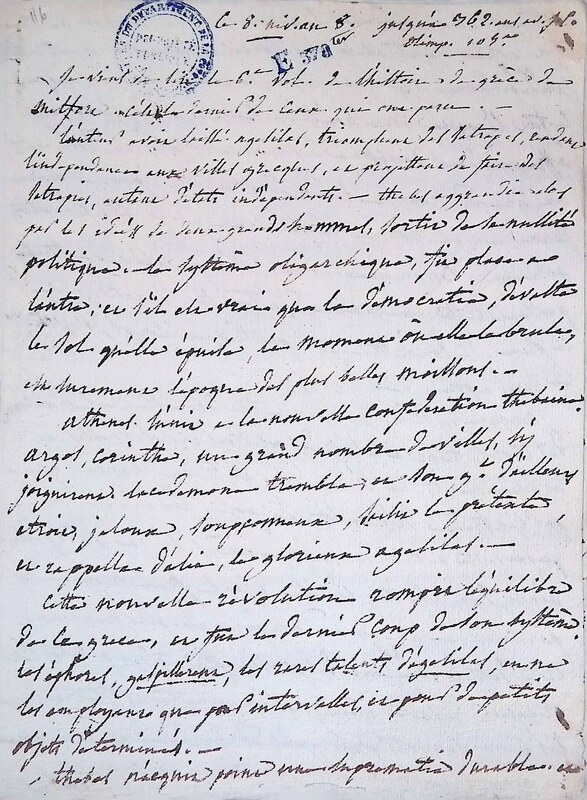 116
le 8. nivose 8. jusqu'à 362. ans av. J.C.
olimp. 105me
E 378 ter
Je viens de lire le 6e vol. de l'histoire de grèce de
mitford celui le dernier de ceux qui ont paru. —
avoir laissé agesilas, triomphant des satrapes, rendant
l'indépendance aux villes grecques, et projettant de faire des
satrapies, autant d'états indépendants. — thebes aggrandie alors
par les idées de deux grands hommes, sortit de sa nullité
politique. le système oligarchique, fit place a
l'autre; et s'il est vrai que la démocratie, dévaste
le sol qu'elle épuise, le moment où elle le brule,
est surement l'époque des plus belles moissons. —
athenes s'unit a la nouvelle confédération thebaine.
argos, corinthe, un grand nombre de villes, s'y
joignirent. lacedemone trembla; et son gt d'ailleurs
etroit, jaloux, soupçonneux, saisit le prétexte,
et rappella d'asie, le glorieux agesilas. —
Cette nouvelle révolution rompit l'équilibre
de la grece, et fut le dernier coup de son système
les éphores, gaspillerent, les rares talents d'agesilas, en ne
les employant que par intervalles, et pour de petits
objets déterminés. —
thebes n'acquit point une suprematie durable. et